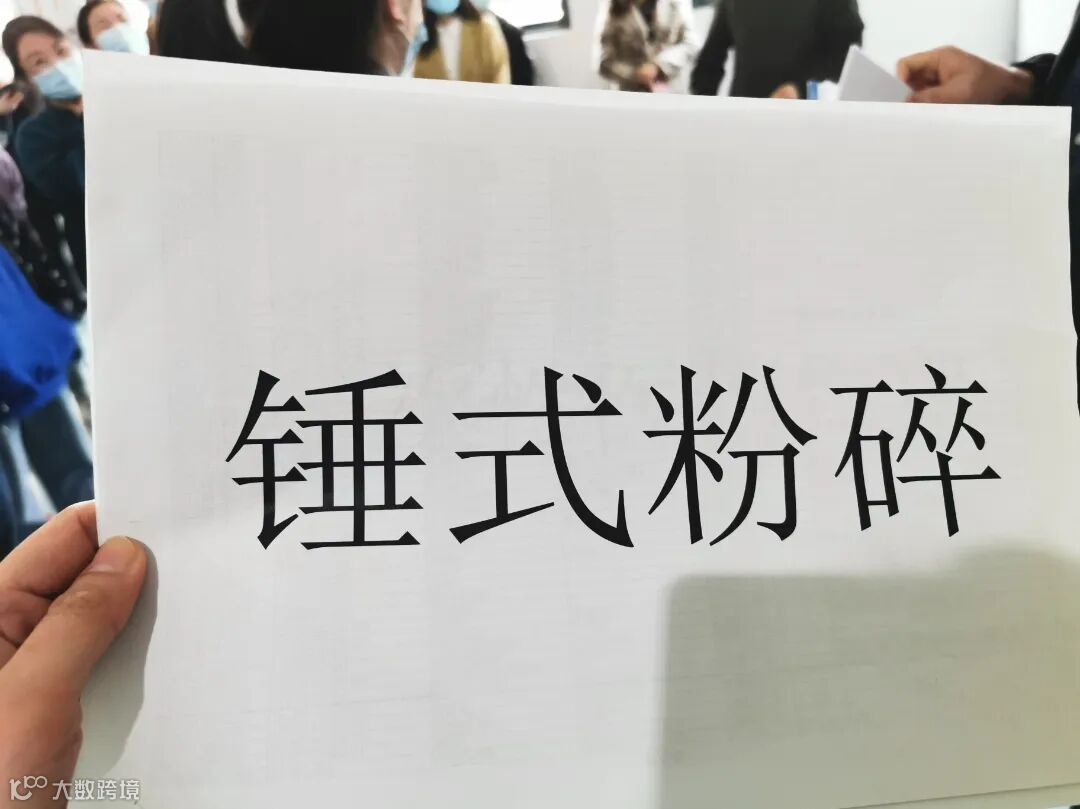 锤式粉碎
大数跨境